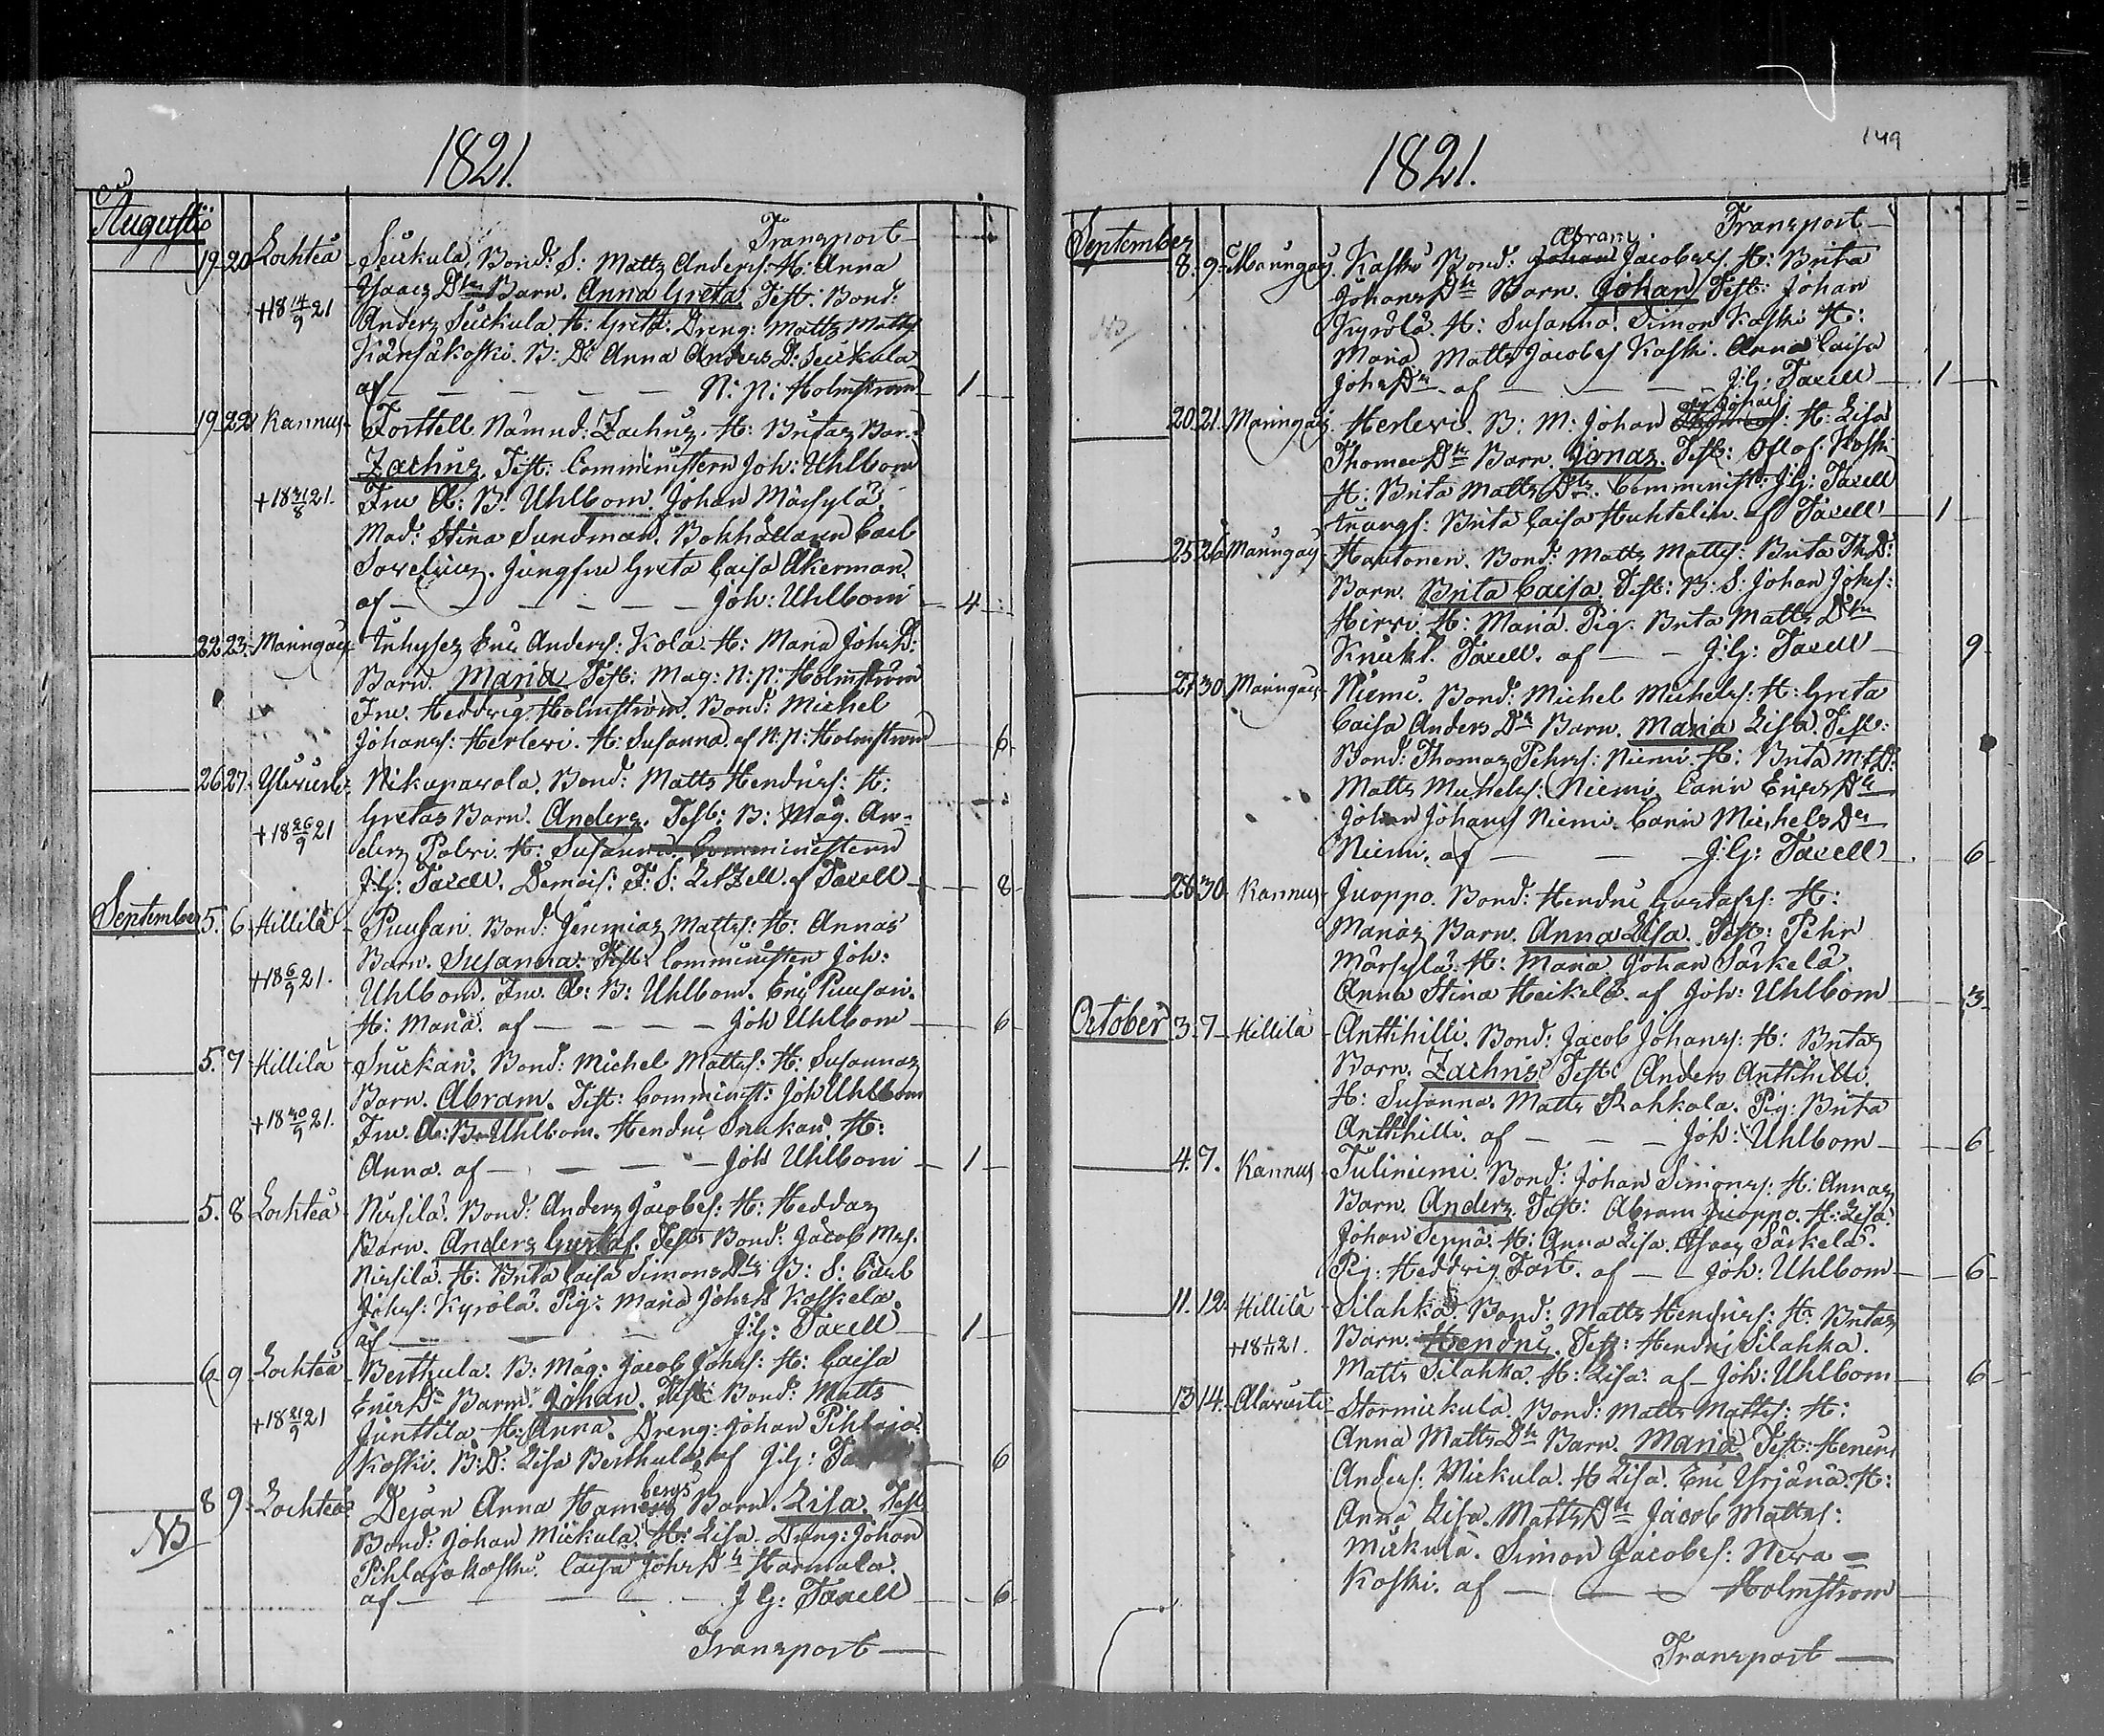 1821.
Augusti
Transport
19 20 Lochteå Seickula, Bond: S: Matts Anders: H: Anna
Isaacs Dr Barn. Anna Greta. Test: Bond:
+18 14/9 21 Anders Seickula. H: Greta. Dreng: Matts Matts
Känsäkoski. B: Dr Anna Anders D: Seickula
af — N: N: Holmström 1
19 22 Kannus Forttell Nämnd: Zachris. H: Britas Barn:
Zachris. Test: Comministern Joh: Uhlbom
+18 31/8 21. Fru A: B: Uhlbom. Johan Märsylä.
Mad: Stina Sundman. Bokhållaren Carl
Sovelius. Jungfru Greta Caisa Åkerman.
af — Joh: Uhlbom 4
22 23 Maringais Inhyses Eric Anders: Kola. H: Maria Johs D:
Barn. Maria Test: Mag: N: N: Holmström
Fru. Heddvig Holmström. Bond: Michel
Johans: Herlevi. H: Susanna. af N: N: Holmström 6
26 27 Yliviirde Nikuparola. Bond: Matts Hendrics: H:
Gretas Barn. Anders. Test: B: Måg. An-
+18 26/9 21 ders Polvi. H: Susanna. Comministern
J: G: Taxell. Demois: F: S: Taxell 8
September 5. 6 Hillilä Puusari. Bond: Jeremias Matts: H: Annas
Barn. Susanna: Test: Comministern Joh:
+18 6/9 21. Uhlbom. Fru. A: B: Uhlbom. Eric Puusari.
H: Maria. af — Joh Uhlbom 6
5. 7 Hillilä Snickari. Bond: Michel Matts: H: Susannas
Barn. Abram. Test: Comminist: Joh Uhlbom
+18 /9 21. Fru. A: B: Uhlbom. Hendric Snickari H:
Anna. af — Joh Uhlbom 1
5. 8 Lochteå Nirsilä. Bond: Anders Jacobs: H: Heddas
Barn. Anders Gustaf. Test: Bond: Jacob Mrs.
Nirsilä. H: Brita Caisa Simons Dr B: S: Carl
Johs: Kyrölä. Pig: Maria Johs D Koskela.
af — J: G: Taxell 1
6 9 Lochteå Berthula. B: Måg: Jacob Johs: H: Caisa
Erics Dr Barn. Johan. Test: Bond: Matts
+18 21/9 21 Junttila H: Anna. Dreng: Johan Pihlaja
Koski. B: D: Lisa Berthula. af J: G: 6
8 9 Lochteå Dejan Anna Hamers bergs Barn. Lisa. Test
NB Bond: Johan Mickula. H: Lisa. Dreng: Johan
Pihlajakoski. Caisa Johs Dr Harmala.
af — J G: Taxell 6
Transport
149
1821.
September
Transport
Abram.
8. 9. Maringais. Koski Bond: Johan Jacobs. H: Brita
Johans Dr Barn. Johan Test: Johan
NB Kyrölä. H: Susanna. Simon Koski H:
Maria Matts Jacobs Koski. Anna Caisa
Johs Dr af — J: G: Taxell 1
20. 21. Maringais Herlevi. B: M: Johan H: Lisa
Thomæ Dr Barn. Jonas. Test: Olof. Koski
H: Brita Matts Dr. Comminist: J: G: Taxell
Jungf: Brita Caisa Huhtelin. af Taxell 1
25 26 Maringais Hautonen. Bond: Matts Matts: Brita Th. D:
Barn. Brita Caisa. Test: B: S: Johan Johs:
Hirvi. H: Maria. Pig. Brita Matts Dr
Taxell. af — J: G: Taxell 9
27 30 Maringais Niemi. Bond: Michel Michels: H: Greta
Caisa Anders Dr Barn. Maria Lisa. Test:
Bond: Thomas Pehrs: Niemi. H: Brita Mts D:
Matts Michels: Niemi. Carin Erics Dr
Johan Johans Niemi. Carin Michels Dr
Niemi. af — J: G: Taxell 6
28 30 Kannus Juoppo. Bond: Hendric Gustafs: H:
Marias Barn. Anna Lisa. Test: Pehr
Märsylä. H: Maria. Johan Särkelä.
Anna Stina Heikelä. af Joh: Uhlbom 3
October 3. 7 Hillilä Anttihilli. Bond: Jacob Johans: H: Britas
Barn. Zachris. Test: Anders Anttihilli.
H: Susanna. Matts Rahkola. Pig: Brita
Anttihilli. af — Joh: Uhlbom 6
4. 7. Kannus Tuliniemi. Bond: Johan Simons: H: Annas
Barn. Anders. Test: Abram Juoppo. H: Lisa:
Johan Seppä. H: Anna Lisa. Isaac Särkelä.
Pig: Heddvig Fort. af — Joh: Uhlbom 6
11. 12. Hillilä Silahka. Bond: Matts Hendrics: H: Britas
+18 21. Barn. Hendric. Test: Hendric Silahka.
Matts Silahka. H: Lisa: af — Joh: Uhlbom 6
13 14. Alaviirti Stormickula. Bond: Matts Matts: H:
Anna Matts Dr Barn. Maria. Test: Henric
Anders: Mickula. H Lisa. Eric Yrjänä. H:
Anna Lisa. Matts Dr Jacob Matts:
Mickula. Simon Jacobs: Neva=
Koski. af — Holmström
Transport